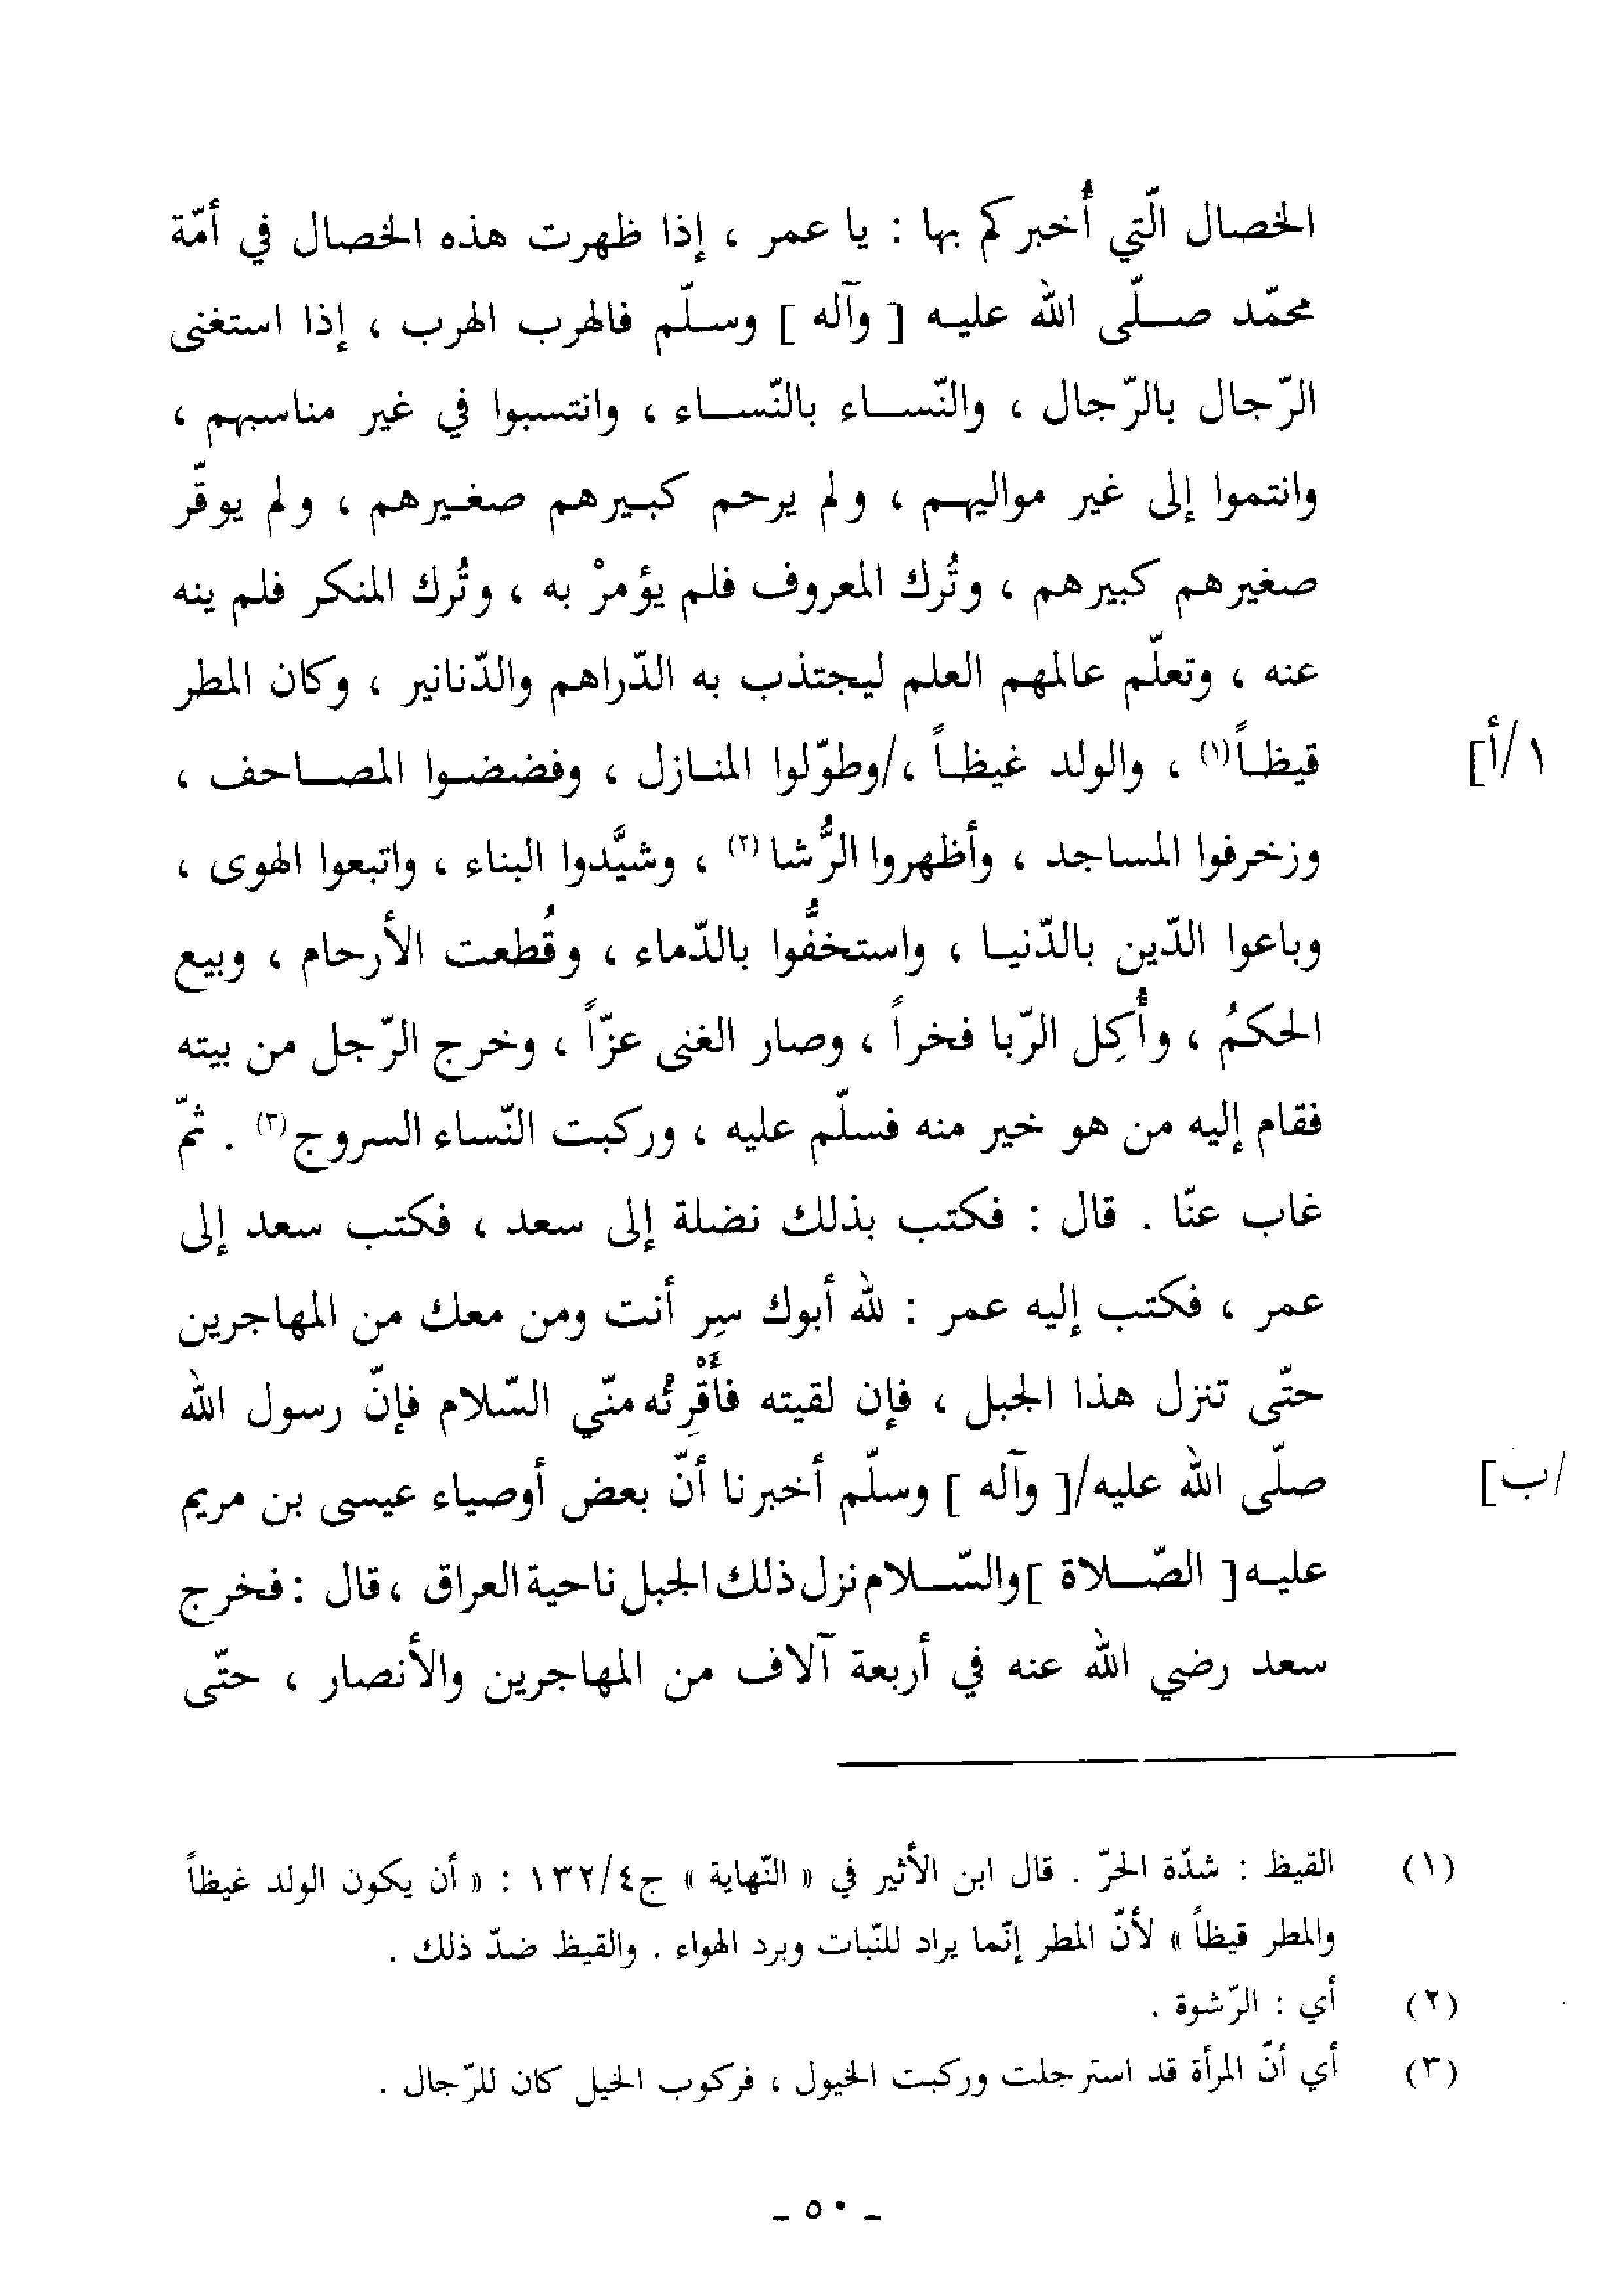 الخصال الّتي أُخبركم بها : يا عمر ، إذا ظهرت هذه الخصال في أمّة
محمّد صلّى الله عليه [ وآله ] وسلّم فالهرب الهرب ، إذا استغنى
الرّجال بالرّجال ، والنّساء بالنّساء ، وانتسبوا في غير مناسبهم ،
وانتموا إلى غير مواليهم ، ولم يرحم كبيرهم صغيرهم ، ولم يوقّر
صغيرهم كبيرهم ، وتُرك المعروف فلم يؤمرْ به ، وتُرك المنكر فلم ينه
عنه ، وتعلّم عالمهم العلم ليجتذب به الدّراهم والدّنانير ، وكان المطر
قيظاً(١) ، والولد غيظاً ،/وطوّلوا المنازل ، وفضضوا المصاحف ، ١/أ]
وزخرفوا المساجد ، وأظهروا الرُّشا(٢) ، وشيَّدوا البناء ، واتبعوا الهوى ،
وباعوا الدّين بالدّنيا ، واستخفُّوا بالدّماء ، وقُطعت الأرحام ، وبيع
الحكمُ ، وأُكِل الرّبا فخراً ، وصار الغنى عزّاً ، وخرج الرّجل من بيته
فقام إليه من هو خير منه فسلّم عليه ، وركبت النّساء السروج(٣) . ثمّ
غاب عنّا . قال : فكتب بذلك نضلة إلى سعد ، فكتب سعد إلى
عمر ، فكتب إليه عمر : لله أبوك سِر أنت ومن معك من المهاجرين
حتّى تنزل هذا الجبل ، فإن لقيته فأَقْرِئُه منّي السّلام فإنّ رسول الله
صلّى الله عليه/[ وآله ] وسلّم أخبرنا أنّ بعض أوصياء عيسى بن مريم /ب]
عليه [ الصّلاة ] والسّلام نزل ذلك الجبل ناحية العراق ، قال : فخرج
سعد رضي الله عنه في أربعة آلاف من المهاجرين والأنصار ، حتّى
(١) القيظ : شدّة الحرّ . قال ابن الأثير في « النّهاية » ج٤/١٣٢ : « أن يكون الولد غيظاً
والمطر قيظاً » لأنّ المطر إنّما يراد للنّبات وبرد الهواء . والقيظ ضدّ ذلك .
(٢) أي : الرّشوة .
(٣) أي أنّ المرأة قد استرجلت وركبت الخيول ، فركوب الخيل كان للرّجال .
ـ ٥٠ ـ